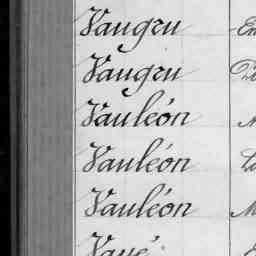 Vaugru
Vaugru
Vauléon
Vauléon
Vauléon
Vayé